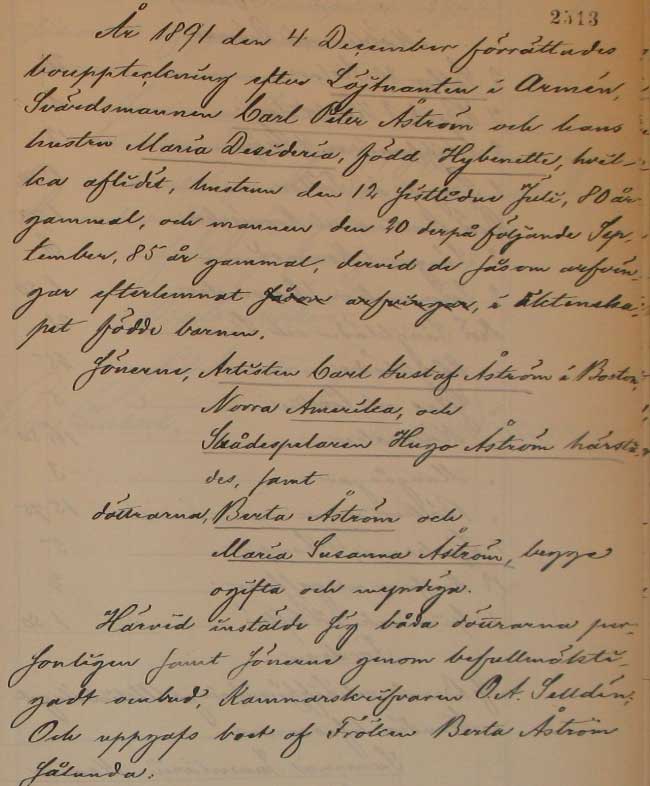 2513
År 1891 den 4 December förrättades
bouppteckning efter Löjtnanten i Armén,
Svärdsmannen Carl Peter Åström och hans
hustru Maria Desideria, född Hybenette, hvil-
ka aflidit, hustrun den 12 sistlidne Juli, 80 år
gammal, och mannen den 20 derpå följande Sep-
tember, 85 år gammal, dervid de såsom arfvin-
gar efterlemnat såsom arfvingar, i äktenska-
pet födde barnen.
Sönerne, Artisten Carl Gustaf Åström i Boston,
Norra Amerika, och
Skådespelaren Hugo Åström härstä-
des, samt
döttrarna, Berta Åström och
Maria Susanna Åström, begge
ogifta och myndiga.
Härvid instälde sig båda döttrarna per-
sonligen samt sönerne genom befullmäkti-
gadt ombud, Kammarskrifvaren O. A. Selldén;
Och uppgafs boet af Fröken Berta Åström
sålunda: